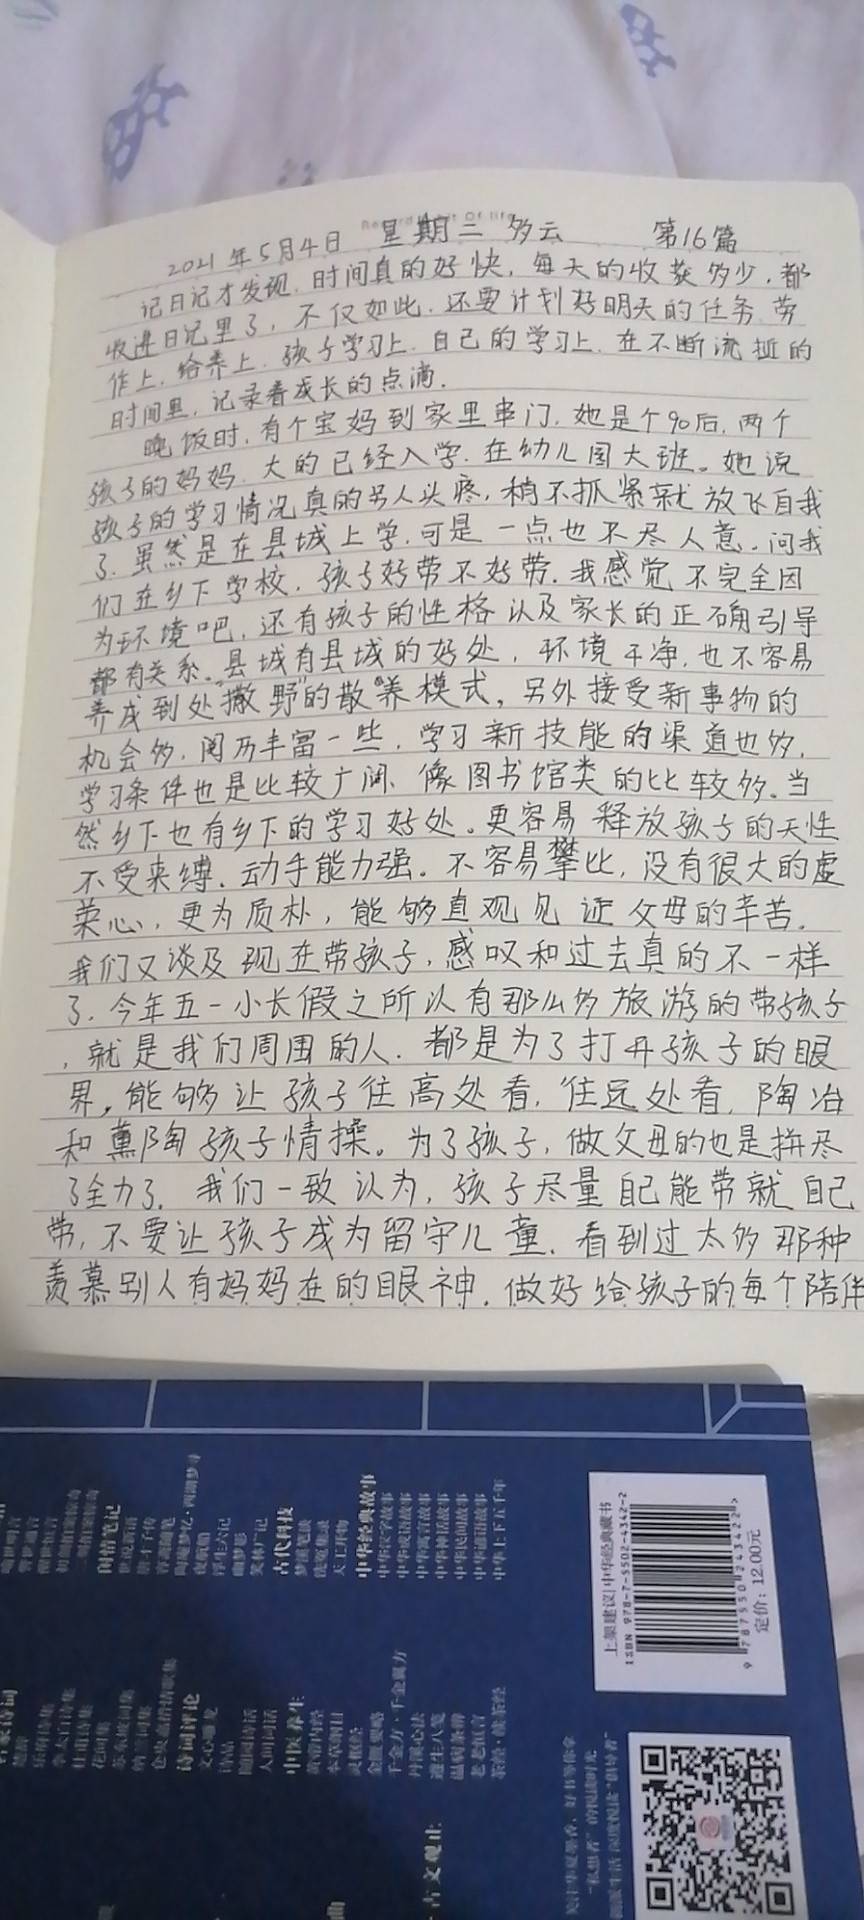 2021年5月4日 星期二 多云 第16篇
记日记才发现,时间真的好快,每天的收获多少,都
收进日记里了,不仅如此,还要计划好明天的任务,劳
作上,给养上,孩子学习上,自己的学习上,在不断流逝的
时间里,记录着成长的点滴.
晚饭时,有个宝妈到家里串门,她是个90后,两个
孩子的妈妈,大的已经入学,在幼儿园大班。她说
孩子的学习情况真的另人头疼,稍不抓紧就放飞自我
了.虽然是在县城上学,可是一点也不尽人意。问我
们在乡下学校,孩子好带不好带.我感觉不完全因
为环境吧,还有孩子的性格以及家长的正确引导
都有关系。县城有县城的好处,环境干净,也不容易
养成到处"撒野"的散养模式,另外接受新事物的
机会多,阅历丰富一些,学习新技能的渠道也多,
学习条件也是比较广阔、像图书馆类的比较多。当
然乡下也有乡下的学习好处。更容易释放孩子的天性
不受束缚,动手能力强。不容易攀比,没有很大的虚
荣心,更为质朴,能够直观见证父母的辛苦。
我们又谈及现在带孩子,感叹和过去真的不一样
了.今年五一小长假之所以有那么多旅游的带孩子
,就是我们周围的人.都是为了打开孩子的眼
界,能够让孩子往高处看,往远处看,陶冶
和薰陶孩子情操。为了孩子,做父母的也是拼尽
了全力了.我们一致认为,孩子尽量自己能带就自己
带,不要让孩子成为留守儿童.看到过太多那种
羡慕别人有妈妈在的眼神.做好给孩子的每个陪伴
上架建议|中华经典藏书
ISBN 978-7-5502-4342-2
9 787550 243422>
定价:12.00元
闲情笔记
古代科技
梦溪笔谈
天工开物
中华经典故事
中华汉字故事
中华成语故事
中华寓言故事
中华神话故事
中华民间故事
中华上下五千年
诗词评论
文心雕龙
人间词话
中医养生
黄帝内经
本草纲目
千金方·千金翼方
古文观止